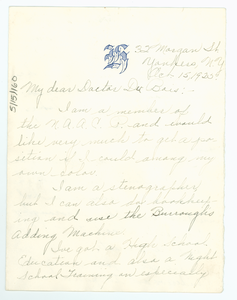 H
32 Morgan St.
Yonkers, N.Y.
Oct. 15, 1920
My dear Doctor Du Bois:-
I am a member of
the N.A.A.C.P. and would
like very much to get a po-
sition if I could among my
own color.
I am a stenographer
but I can also do bookkeep-
ing and use the Burroughs
Adding Machine.
I've got a High School
Education and also a Night
School Training on especially
5/5/160